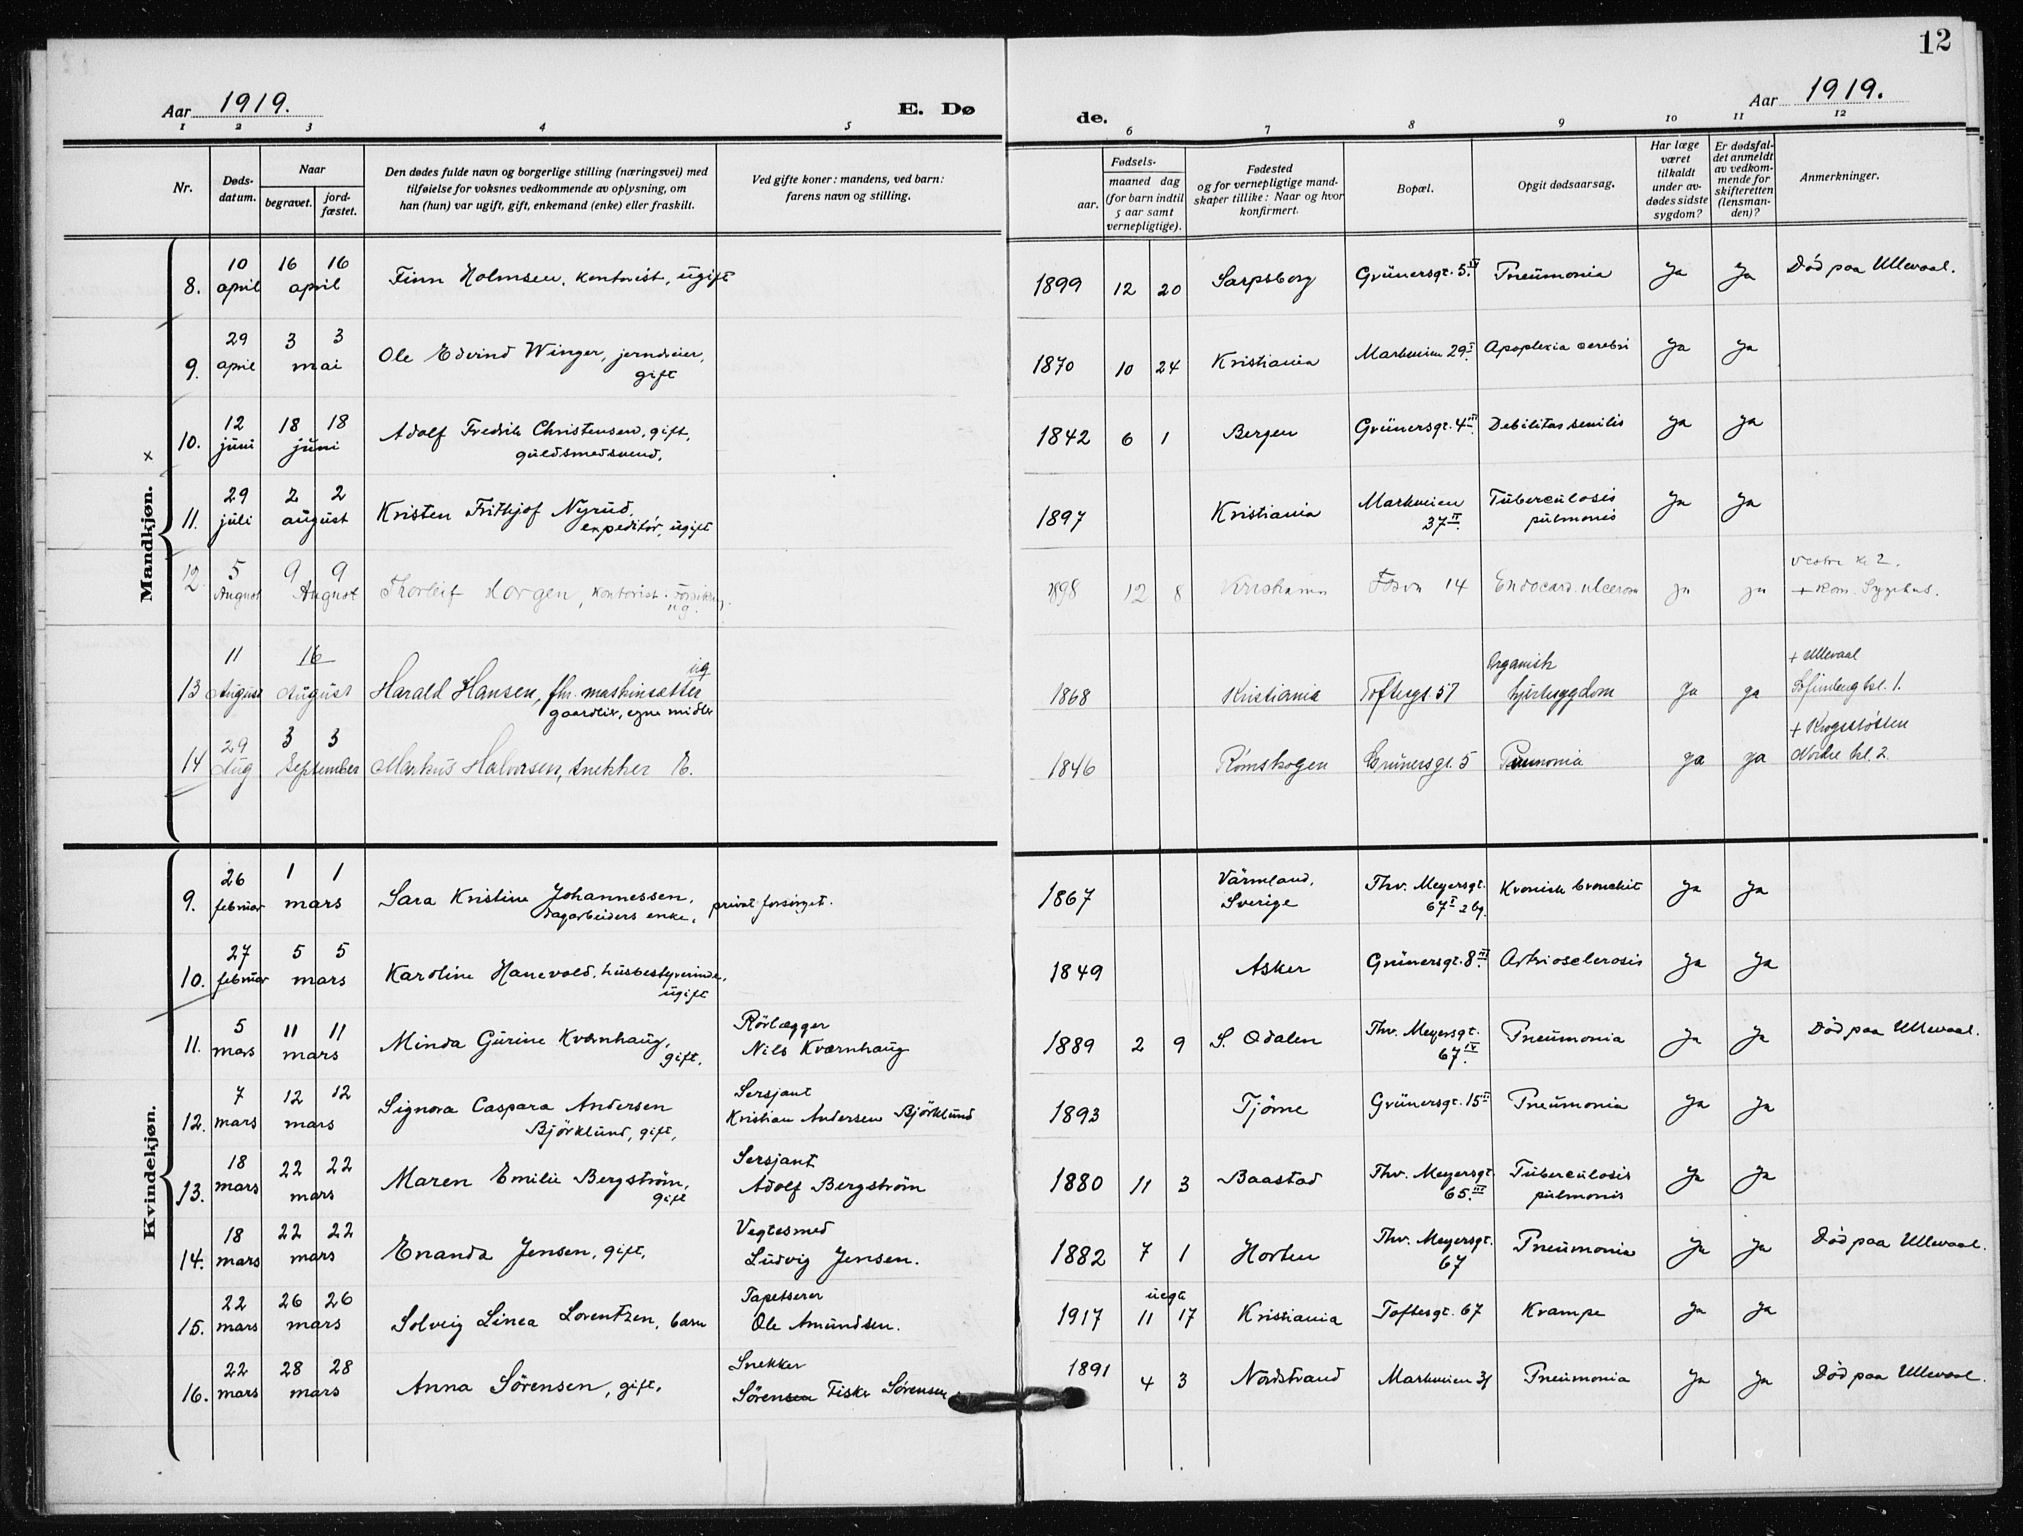 12
Aar 1919.
E. Dø
de.
Aar 1919.
1 2 3 4 5 6 7 8 9 10 11 12
Nr.
Døds-
datum.
Naar
begravet.
jord-
fæstet.
Den dødes fulde navn og borgerlige stilling (næringsvei) med
tilføielse for voksnes vedkommende av oplysning, om
han (hun) var ugift, gift, enkemand (enke) eller fraskilt.
Ved gifte koner: mandens, ved barn:
farens navn og stilling.
Fødsels-
aar.
maaned dag
(for barn indtil
5 aar samt
vernepligtige).
Fødested
og for vernepligtige mand-
skaper tillike: Naar og hvor
konfirmert.
Bopæl.
Opgit dødsaarsag.
Har læge
været
tilkaldt
under av-
dødes sidste
sygdom?
Er dødsfal-
det anmeldt
av vedkom-
mende for
skifteretten
(lensman-
den)?
Anmerkninger.
Mandkjøn.
8. 10 april 16 16 april Finn Holmsen, kontorist, ugift 1899 12 20 Sarpsborg Grünersgt. 5 IV Pneumonia Ja Ja Död paa Ullevaal.
9. 29 april 3 3 mai Ole Edvind Winger, jerndreier,
gift 1870 10 24 Kristiania Markveien 29 I Apoplexia cerebri Ja Ja
10. 12 juni 18 18 juni Adolf Fredrik Christensen, gift,
guldsmedsvend. 1842 6 1 Bergen Grünersgt. 4 III Debilitas senilis Ja Ja
11. 29 juli 2 2 august Kristen Frithjof Nyrud,
expeditör, ugift 1897 Kristiania Markveien
37 II. Tuberculosis
pulmonis Ja Ja
12. 5 August 9 9 August Thorleif Morgen, kontorist
ug. 1898 12 8 Kristiania 14 Endocard. ulcerosa ja ja Vestre Kl 2.
+ Kom. Sygehus.
13 11 August 16 August Harald Hansen, fhv. maskinsætter ug
gaardeier, egne midler 1868 Kristiania Toftesgt 57 Organisk
hjertesygdom Ja ja + Ullevaal
Sofienberg kl. 1.
14 29 Aug 3 3 September Markus Halvorsen, snekker E. 1846 Rømskogen Grünersgt. 5 Pneumonia ja ja + Krogsstøtten
Nordre kl. 2
Kvindekjøn.
9. 26 februar 1 1 mars Sara Kristine Johannessen,
dagarbeiders enke, privat forsørget. 1867 Värmland,
Sverige Thv. Meyersgt.
67 I 2 bg. Kronisk bronchit Ja Ja
10. 27 februar 5 5 mars Karoline Hanevold, husbestyrerinde,
ugift 1849 Asker Grünersgt. 8 III Artriosclerosis Ja Ja
11. 5 mars 11 11 mars Minda Gurine Kværnhaug,
gift. Rörlægger
Nils Kværnhaug 1889 2 9 S. Odalen Thv. Meyersgt.
67 IV. Pneumonia Ja Ja Död paa Ullevaal.
12. 7 mars 12 12 mars Signora Caspara Andersen
Björklund, gift, Sersjant
Kristian Andersen Björklund 1893 Tjöme Grünersgt. 15 III Pneumonia Ja Ja
13. 18 mars 22 22 mars Maren Emilie Bergström,
gift Sersjant
Adolf Bergström 1880 11 3 Baastad Thv. Meyersgt
65. III Tuberculosis
pulmonis Ja Ja
14. 18 mars 22 22 mars Enanda Jensen, gift, Vegtesmed
Ludvig Jensen. 1882 7 1 Horten Thv. Meyersgt.
67 Pneumonia Ja Ja Död paa Ullevaal.
15. 22 mars 26 26 mars Solveig Linea Lorentzen, barn Tapetserer
Ole Amundsen. 1917 uegt 11 17 Kristiania Toftesgt. 67 Krampe Ja Ja
16. 22 mars 28 28 mars Anna Sörensen, gift, Snekker
Sörensen Fisker Sörensen 1891 4 3 Nordstrand Markveien 31 Pneumonia Ja Ja Död paa Ullevaal.